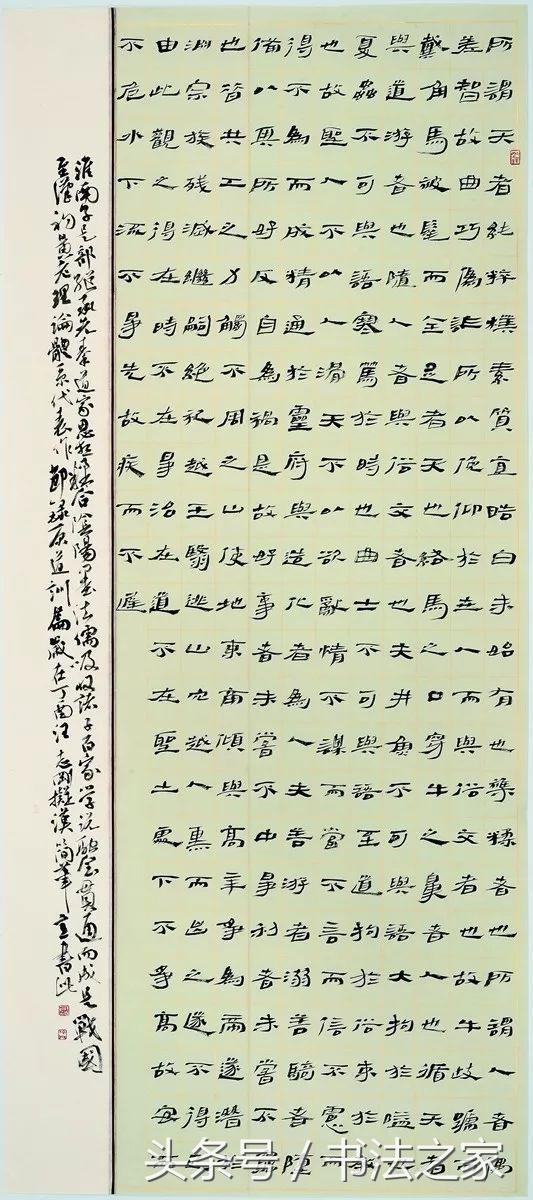 所謂天者純粹樸素質宜皓白未始有也襍糅者也所謂人者偶
差智故曲巧偽詐所以俛仰於世人而與俗交者也故牛歧蹏而
戴角馬被髦而全足者天也絡馬之口穿牛之鼻者人也循天者
與道游者也隨人者與俗交者也夫井魚不可與語大拘於隘也
夏蟲不可與語寒篤於時也曲士不可與語至道拘於俗束於教
也故聖人不以人滑天不以欲亂情不謀而當不言而信不慮而
得不為而成精通於靈府與造化者為人夫善游者溺善騎者墮
備以其所好反自為禍是故好事者未嘗不中爭利者未嘗不窮
也昔共工之力觸不周之山使地東南傾與高辛爭為帝遂潛於
淵宗族殘滅繼嗣絕祀越王翳逃山穴越人熏而出之遂不得已
由此觀之得在時不在爭治在道不在聖土處下不爭高故安而
不危水下流不爭先故疾而不遲
淮南子是部繼承先秦道家思想綜合陰陽墨法儒汲收諸子百家学说融会貫通而成是戰國
至漢初黄老理論體系代表作節録原道訓篇歲在丁酉汪志剛擬漢簡筆意書此
头条号 / 书法之家